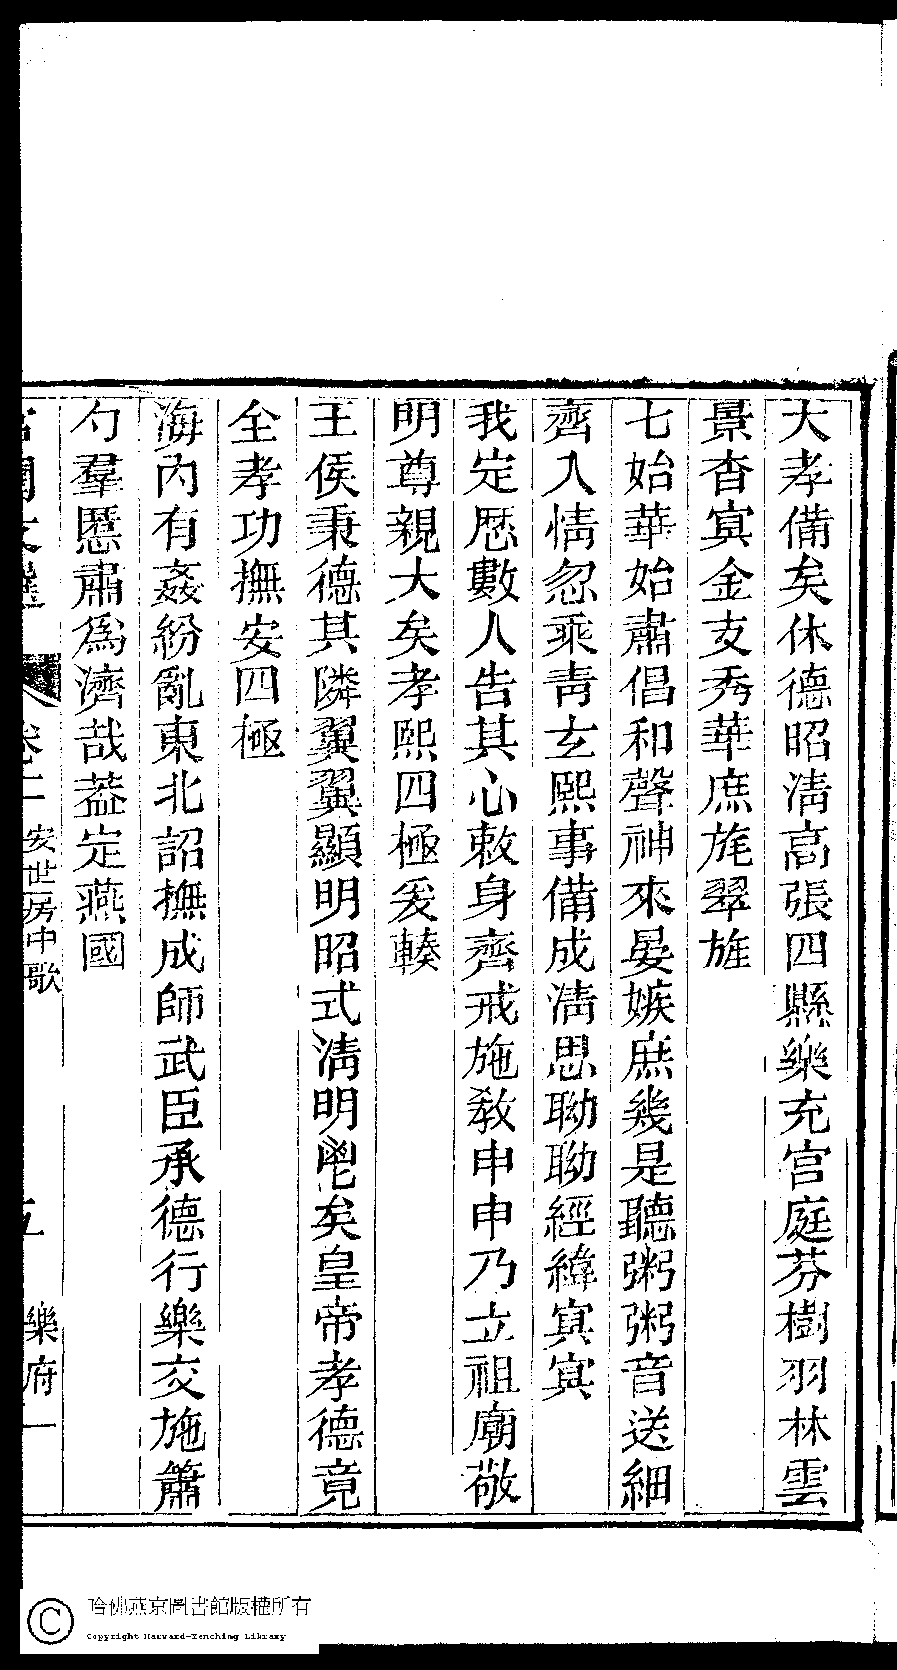 大孝備矣休德昭淸高張四縣樂充宮庭芬樹羽林雲
景杳冥金支秀華庶旄翠旌
七始華始肅倡和聲神來晏娭庶幾是聽粥粥音送細
齊人情忽乘靑玄熙事備成淸思聈聈經緯冥冥
我定厯數人告其心敕身齊戒施敎申申乃立祖廟敬
明尊親大矣孝熙四極爰轃
王侯秉德其隣翼翼顯明昭式淸明鬯矣皇帝孝德竟
全孝功撫安四極
海內有姦紛亂東北詔撫成師武臣承德行樂交施簫
勺羣慝肅爲濟哉葢定燕國
宮閨文選 卷二 安世房中歌 五 樂府一
哈佛燕京圖書館版權所有
Copyright Harvard-Yenching Library